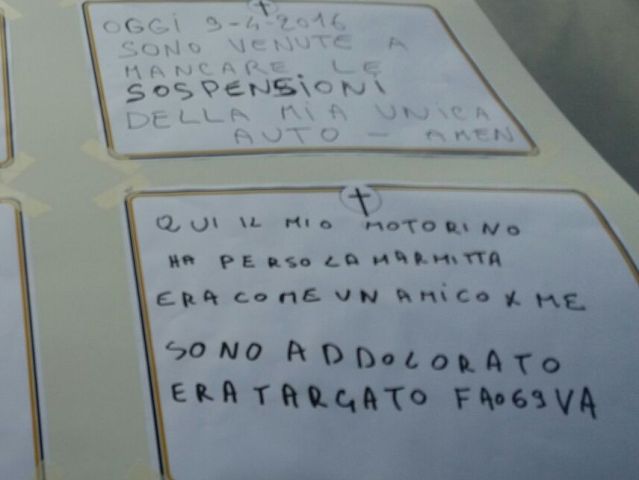 OGGI 9-4-2016
SONO VENUTE A
MANCARE LE
SOSPENSIONI
DELLA MIA UNICA
AUTO - AMEN
QUI IL MIO MOTORINO
HA PERSO LA MARMITTA
ERA COME UN AMICO X ME
SONO ADDOLORATO
ERA TARGATO FA069VA